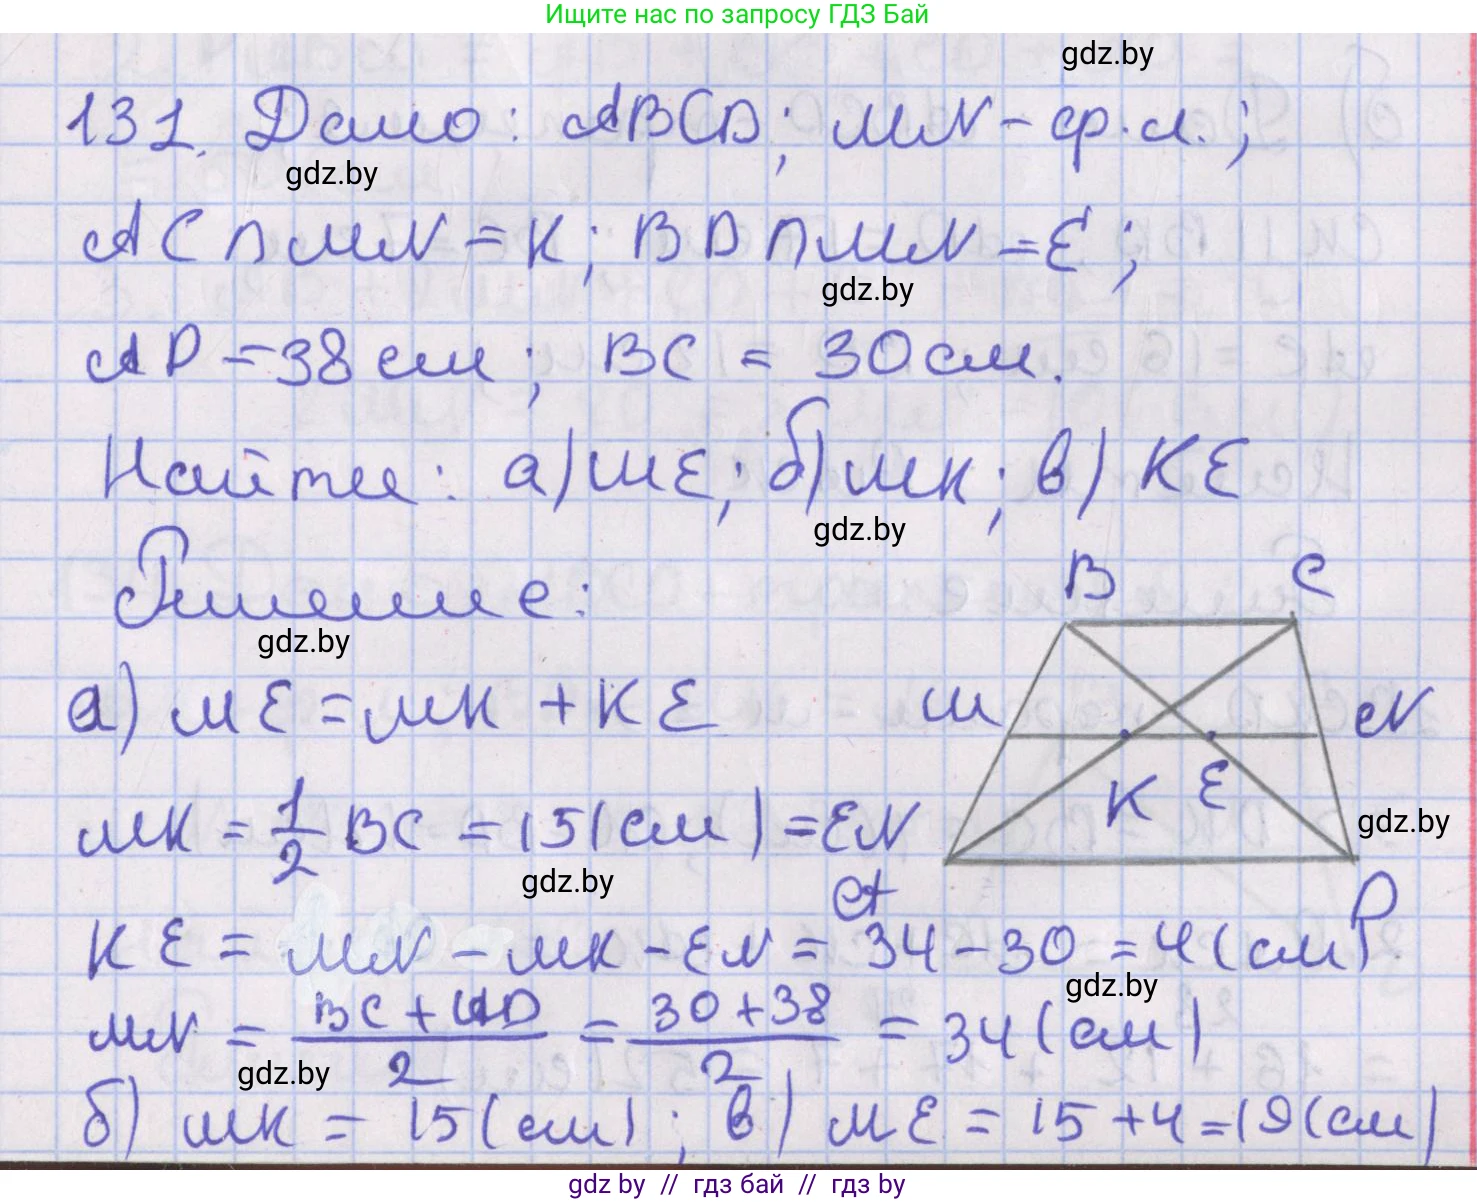 Ищите нас по запросу ГДЗ Бай
gdz.by
131. Дано: ABCD; MN - ср. л.;
gdz.by
AC ∩ MN = K; BD ∩ MN = E;
gdz.by
AD = 38 см; BC = 30 см.
Найти: а) ME; б) MK; в) KE
gdz.by
Решение:
gdz.by
B C
M N
K E
A D
gdz.by
а) ME = MK + KE
MK = 1/2 BC = 15 (см) = EN
gdz.by
KE = MN - MK - EN = 34 - 30 = 4 (см)
gdz.by
MN = (BC + AD)/2 = (30 + 38)/2 = 34 (см)
gdz.by
б) MK = 15 (см); в) ME = 15 + 4 = 19 (см)
gdz by // гдз бай // гдз by